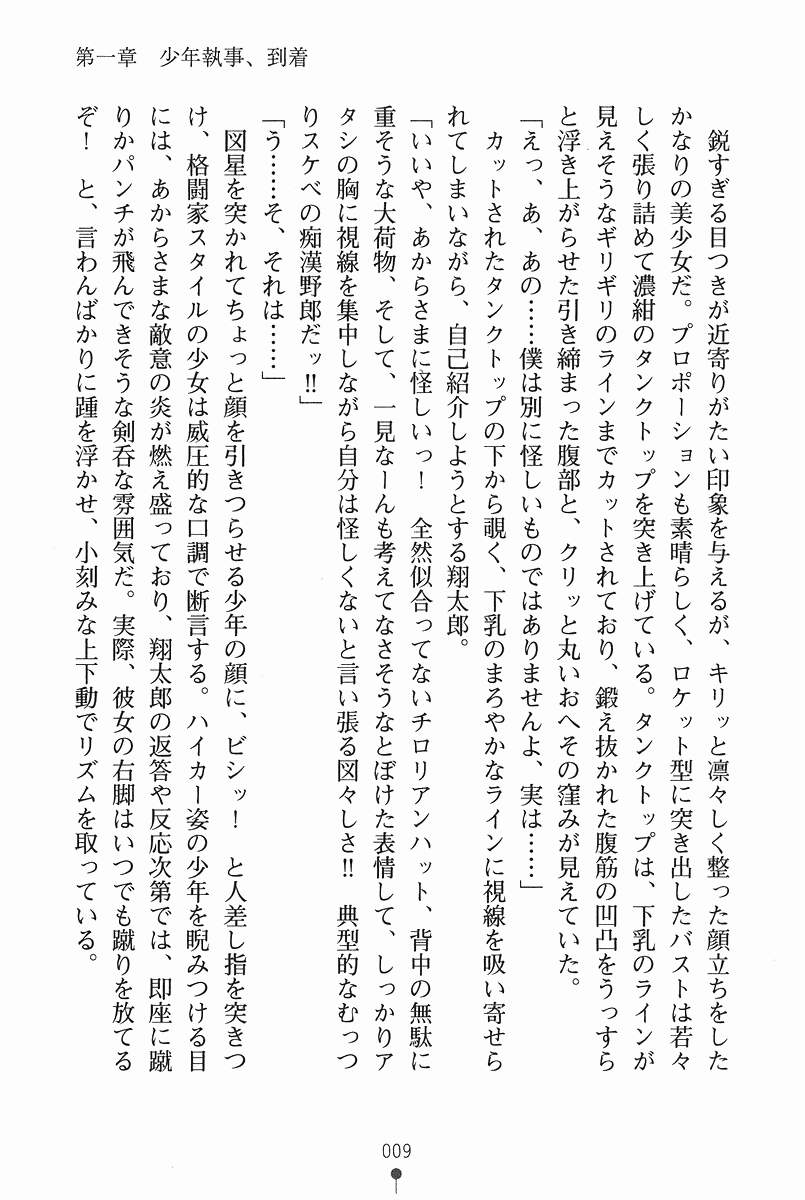 第一章　少年執事、到着
　鋭すぎる目つきが近寄りがたい印象を与えるが、キリッと凛々しく整った顔立ちをした
かなりの美少女だ。プロポーションも素晴らしく、ロケット型に突き出したバストは若々
しく張り詰めて濃紺のタンクトップを突き上げている。タンクトップは、下乳のラインが
見えそうなギリギリのラインまでカットされており、鍛え抜かれた腹筋の凹凸をうっすら
と浮き上がらせた引き締まった腹部と、クリッと丸いおへその窪みが見えていた。
「えっ、あ、あの……僕は別に怪しいものではありませんよ、実は……」
　カットされたタンクトップの下から覗く、下乳のまろやかなラインに視線を吸い寄せら
れてしまいながら、自己紹介しようとする翔太郎。
「いいや、あからさまに怪しいっ！　全然似合ってないチロリアンハット、背中の無駄に
重そうな大荷物、そして、一見なーんも考えてなさそうなとぼけた表情して、しっかりア
タシの胸に視線を集中しながら自分は怪しくないと言い張る図々しさ‼　典型的なむっつ
りスケベの痴漢野郎だッ‼」
「う……そ、それは……」
　図星を突かれてちょっと顔を引きつらせる少年の顔に、ビシッ！　と人差し指を突きつ
け、格闘家スタイルの少女は威圧的な口調で断言する。ハイカー姿の少年を睨みつける目
には、あからさまな敵意の炎が燃え盛っており、翔太郎の返答や反応次第では、即座に蹴
りかパンチが飛んできそうな剣呑な雰囲気だ。実際、彼女の右脚はいつでも蹴りを放てる
ぞ！　と、言わんばかりに踵を浮かせ、小刻みな上下動でリズムを取っている。
009